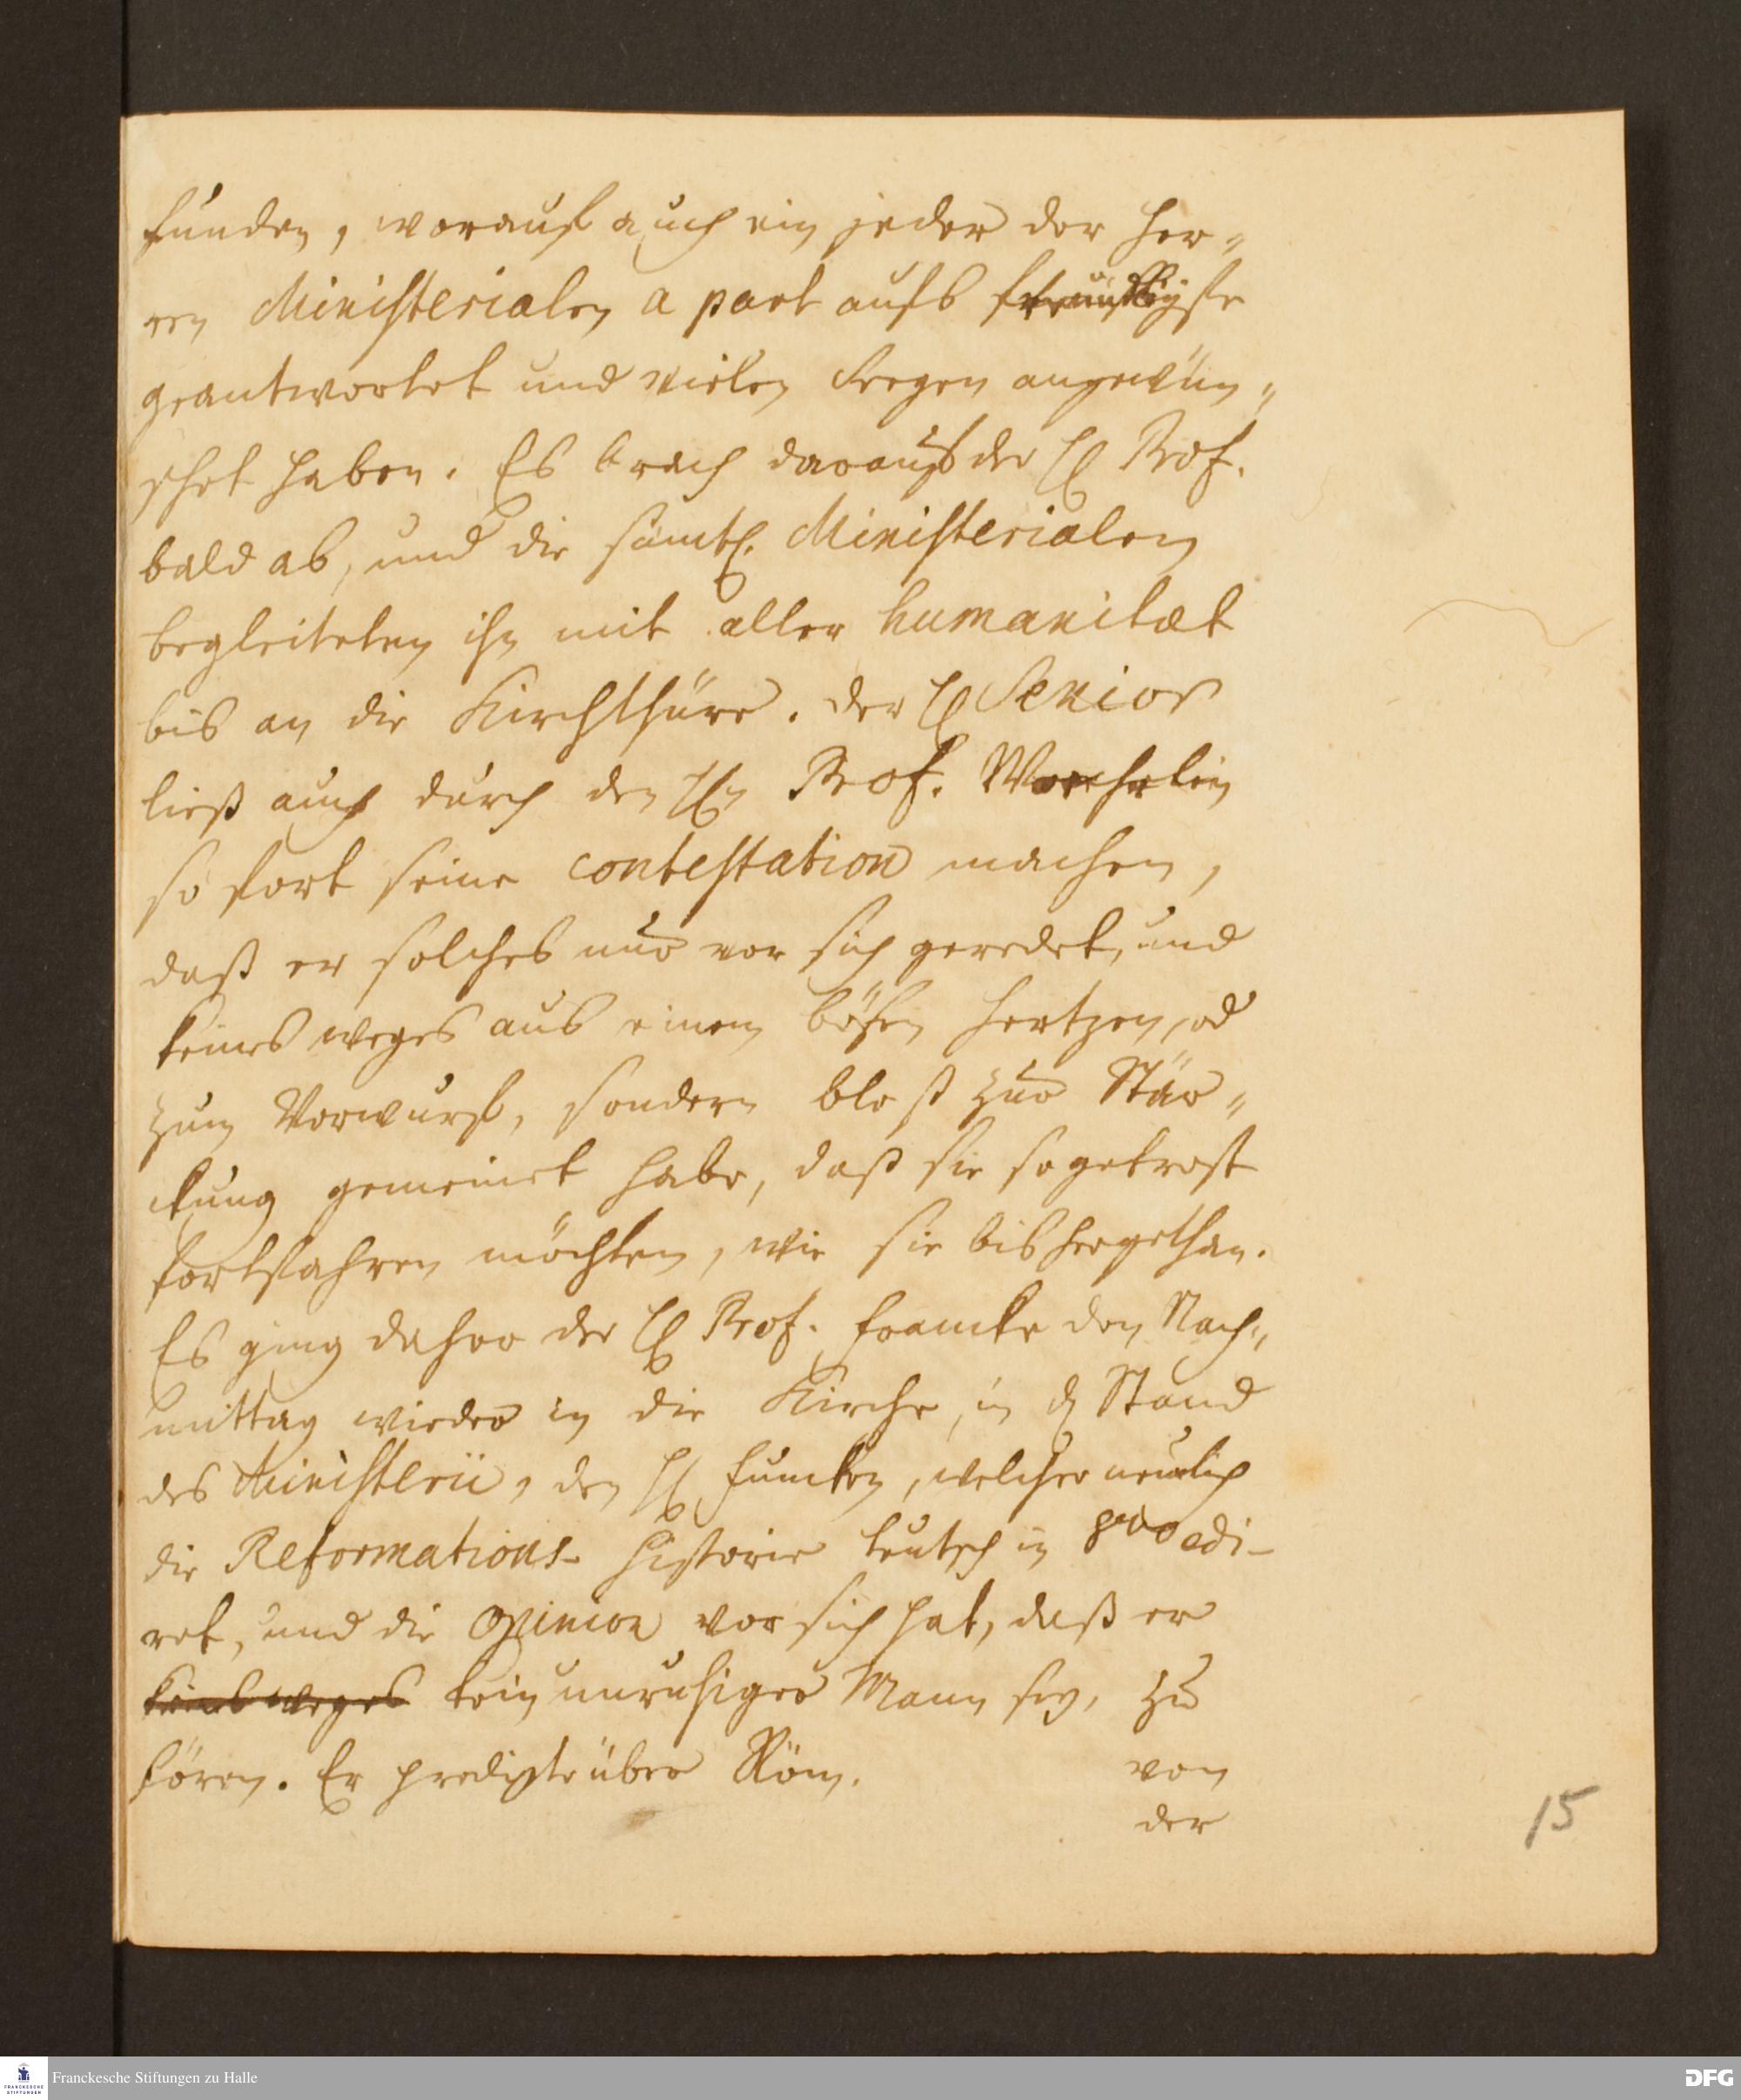 funden, worauf auch ein jeder der Her-
ren Ministerialen a part aufs freundlichste
geantwortet und vielen Seegen angewün-
schet haben. Es brach darauf der H. Prof.
bald ab, und die sämtl. Ministerialen
begleiteten ihn mit aller humanitæt
bis an die Kirchthüre. Der H. Senior
ließ auch durch den Hn Prof.
so fort seine contestation machen,
daß er solches nur vor sich geredet, und
keines weges aus einem bösen Hertzen, od
zum Vorwurf, sondern bloß zur Stär-
ckung gemeinet habe, daß sie so getrost
fortfahren möchten, wie sie bisher gethan.
Es ging daher der H. Prof. Francke den Nach-
mittag wieder in die Kirche, in d. Stand
des Ministerii, den H. Funcken, welcher neulich
die Reformations-Historie teutsch in 8vo edi-
ret, und die opinion vor sich hat, daß er
keines weges kein unruhiger Mann sey, zu
hören. Er predigte über Röm. von
der
15
Franckesche Stiftungen zu Halle
FRANCKESCHE
STIFTUNGEN
DFG